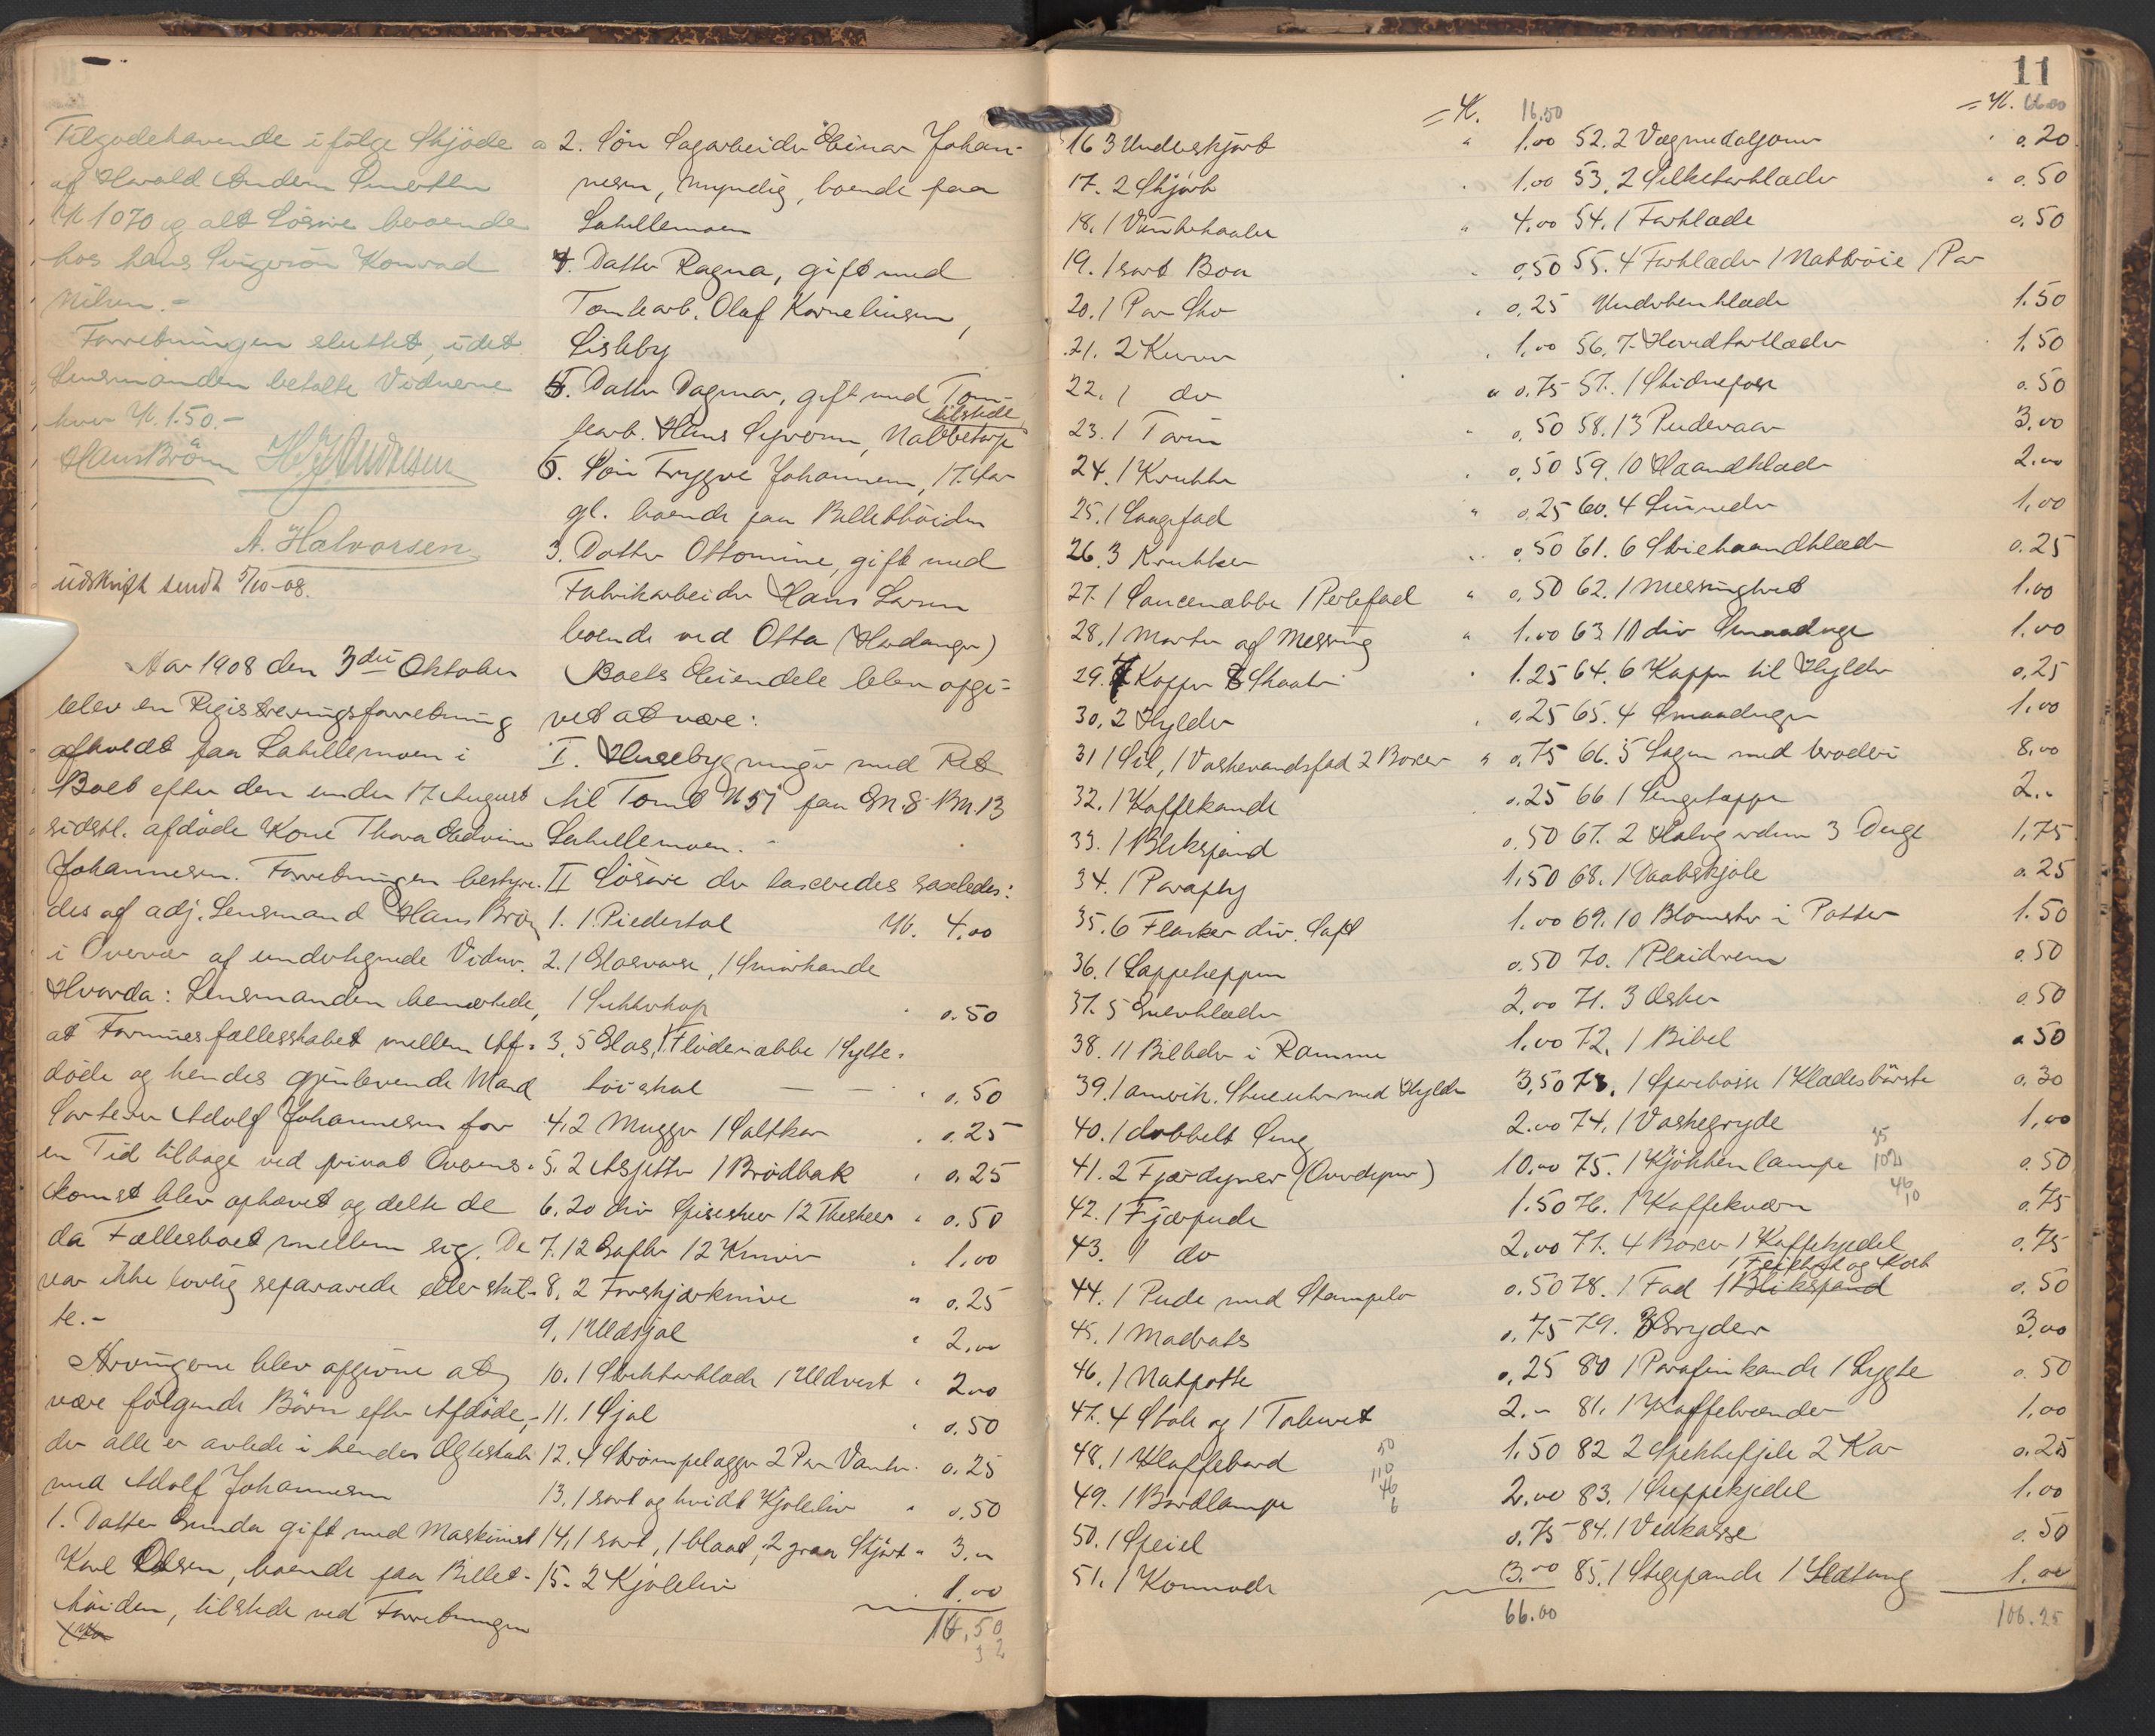 Tilgodehavende ifölge Skjöde
af Harald Anders
Kr 1070 og alt Lösöre beroende
hos hans Svigersön Konrad
Nilsen.-
Forretningen sluttet, idet
Lensmanden betalte Vidnerne
hver Kr. 1.50.-
Hans Brönn H J Andresen
A. Halvorsen
Udskrift sendt 5/10-08.
Aar 1908 den 3die Oktober
blev en Registreringsforretning
afholdt paa Labillemoen i
Boet efter den under 17 August
sidstl. afdöde Kone Thora Edvine
Johannesen. Forretningen bestyre-
des af adj. Lensmand Hans Brönn
i Overvær af undertegnede Vidner.
Hvorda: Lensmanden bemærkede,
at Formuesfællesskabet mellem Af-
döde og hendes gjenlevende Mand
Adolf Johannesen for
en Tid tilbage ved privat Overens-
komst blev ophævet og delte de
da Fællesboet mellem sig. De
var ikke lovlig separerede eller skil-
te.-
Arvingerne blev opgivne at
være fölgende Börn efter Afdöde,-
der alle er avlede i hendes Ægteskab
med Adolf Johannesen
1. Datter Gunda gift med Maskinist
Karl Olsen, boende paa Billet-
höiden, tilstede ved Forretningen
2. Sön Sagarbeider Einar Johan-
nesen, myndig, boende paa
Labillemoen
4. Datter Ragna, gift med
Tomtearb. Olaf Korneliusen,
Lisleby
5. Datter Dagmar, gift med Tom-
tearb. Hans Syversen, Nabbetorp
tilstede
6. Sön Trygve Johannesen, 17 Aar
gl. boende paa Billethöiden
3. Datter Ottomine, gift med
Fabrikarbeider Hans Larsen
boende ved Otta (Hardanger)
Boets Eiendele blev opgi-
vet at være:
I. Husebygninger med Ret
til Tomt N 51 paa G.N. 8 B.N. 13
Labillemoen.
II Lösöre der taxeredes saaledes:
1. 1 Piedestal Kr. 4.00
2. 1 Glasvase, 1 Smörkande
1 Sukkerkop " 0.50
3. 5 Glas, 1 Flödenæbbe 1 Sylte-
töiskal — — " 0.50
4. 2 Mugger 1 Saltkar " 0.25
5. 2 Asjetter 1 Brödbak " 0.25
6. 20 div Spiseskeer 12 Theskeer " 0.50
7. 12 Gafler 12 Knive " 1.00
8. 2 Forskjærknive " 0.25
9. 1 Uldsjal " 2.00
10. 1 Strikforklæde 1 Uldvest " 2.00
11. 1 Sjal " 0.50
12. 4 Strömpelægger 2 Par Vanter " 0.25
13. 1 sort og hvidt Kjoleliv " 0.50
14. 1 sort, 1 blaat, 2 graa Skjört " 3.-
15. 2 Kjoleliv " 1.00
16.50
32
11
= Kr. 16.50
16 3 Underskjört " 1.00
17. 2 Skjört " 1.00
18. 1 Vinterkaabe " 4.00
19. 1 sort Boa " 0.50
20. 1 Par Sko " 0.25
21. 2 Kurve " 1.00
22. 1 do " 0.75
23. 1 Torin " 0.50
24. 1 Krukke " 0.50
25. 1 Langefad " 0.25
26. 3 Krukker " 0.50
27. 1 Saucenæbbe 1 Perlefad " 0.50
28. 1 Morter af Messing " 1.00
29. 7 Kopper 8 Skaaler " 1.25
30. 2 Hylder " 0.25
31 1 Sil, 1 Vaskevandsfad 2 Boxer " 0.75
32. 1 Kaffekande 0.25
33. 1 Blikspand 0.50
34. 1 Paraply 1.50
35. 6 Flasker div. Saft 1.00
36. 1 Lappeteppen 0.50
37. 5 2.00
38. 11 Billeder i Ramme 1.00
39. 1 amerik. Stueuhr med Hylde 3.50
40. 1 dobbelt Seng 2.00
41. 2 Fjærdyner (Overdyner) 10.00
42. 1 Fjærpude 1.50
43. 1 do 2.00
44. 1 Pude med Stampelo 0.50
45. 1 Madrats 0.75
46. 1 Natpotte 0.25
47. 4 Stole og 1 Taburet 2.-
48. 1 Klaffebord 1.50
49. 1 Bordlampe 2.00
50. 1 Speil 0.75
51. 1 Komode 3.00
66.00
= Kr. 66.00
52. 2 Vægmedaljoner " 0.20
53. 2 Silketörklæder " 0.50
54. 1 Forklæde 0.50
55. 4 Forklæder 1 Nattröie 1 Par
Underbenklæder 1.50
56. 7 Hovedtörklæder 1.50
57. 1 Skidnepose 0.50
58. 13 Pudevaar 3.00
59. 10 Haandklæder 2.00
60. 4 1.00
61. 6 Striehaandklæder 0.25
62. 1 1.00
63 10 div Smaaduge 1.00
64. 6 Kapper til Hylder 0.25
65. 4 Smaaduger 1.00
66. 5 Lagen med broderi 8.00
66 1 Sengetæppe 2.-
67. 2 3 Duge 1.75
68. 1 Daabskjole 0.25
69. 10 Blomster i Potter 1.50
70. 1 Pleidrem 0.50
71. 3 Æsker 0.50
72. 1 Bibel 0.50
73. 1 Sparebösse 1 Klædesbörste 0.30
74. 1 Vaskegryde 1.00
75. 1 Kjökkenlampe 0.50
76. 1 Kaffekværn 0.75
77. 4 Boxer 1 Kaffekjedel 0.75
1 Feiebret og Kost
78. 1 Fad 1 Blikspand 0.50
79. 3 Gryder 3.00
80 1 Parafinkande 1 Lygte 0.50
81. 1 Kaffebrænder 1.00
82 2 Spekkefjele 2 Kar 0.25
83. 1 Suppekjedel 1.00
84. 1 Vedkasse 0.50
85. 1 Stegepande 1 Ildtang 1.00
106.25